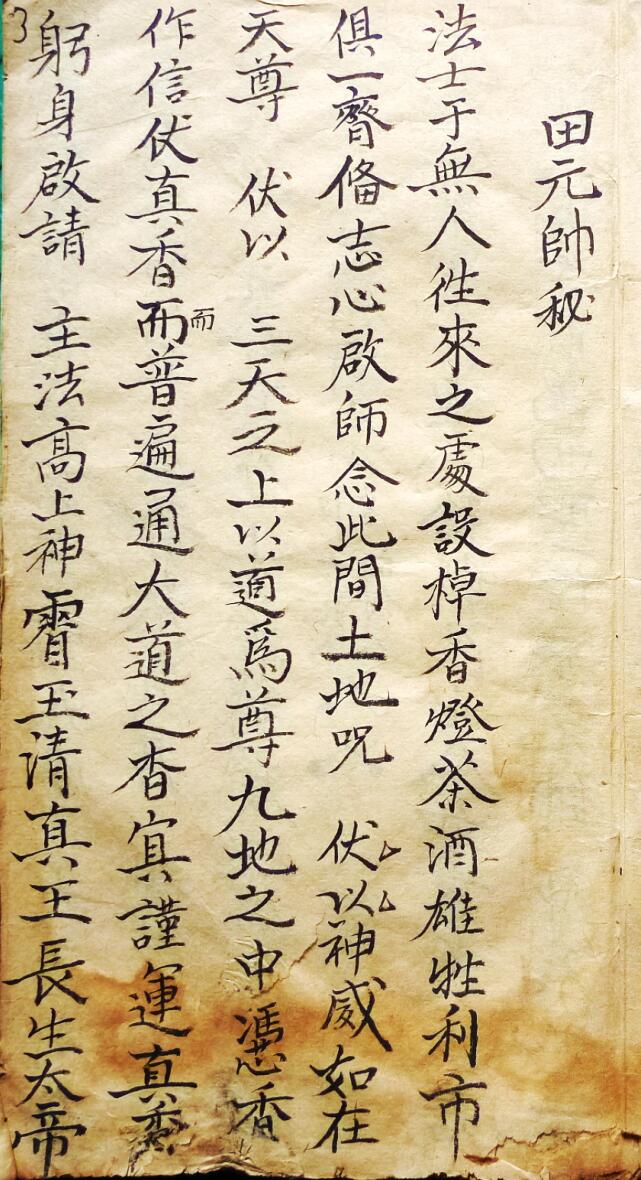 田元帥秘
法士于無人徃來之處設棹香燈茶酒雄牲利市
俱一齊俻志心啟師念此間土地咒 伏以神威如在
天尊 伏以 三天之上以道爲尊九地之中馮香
作信伏真香而普遍通大道之杳冥謹運真香
而
躬身啟請 主法髙上神霄玉清真王長生太帝
3